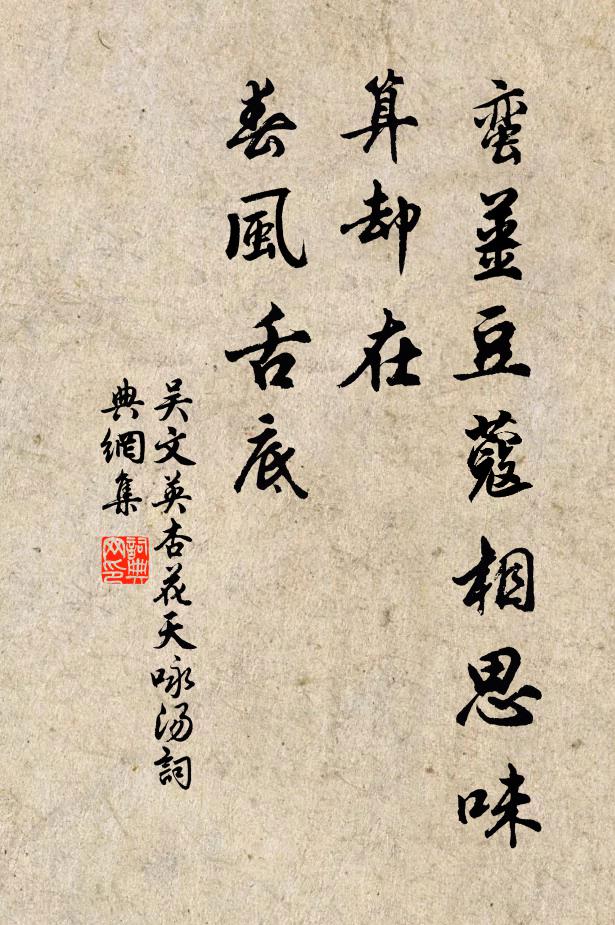 蛮薑豆蔻相思味
算却在
春風舌底
吴文英杏花天咏汤詞
典網集
詞典
网印